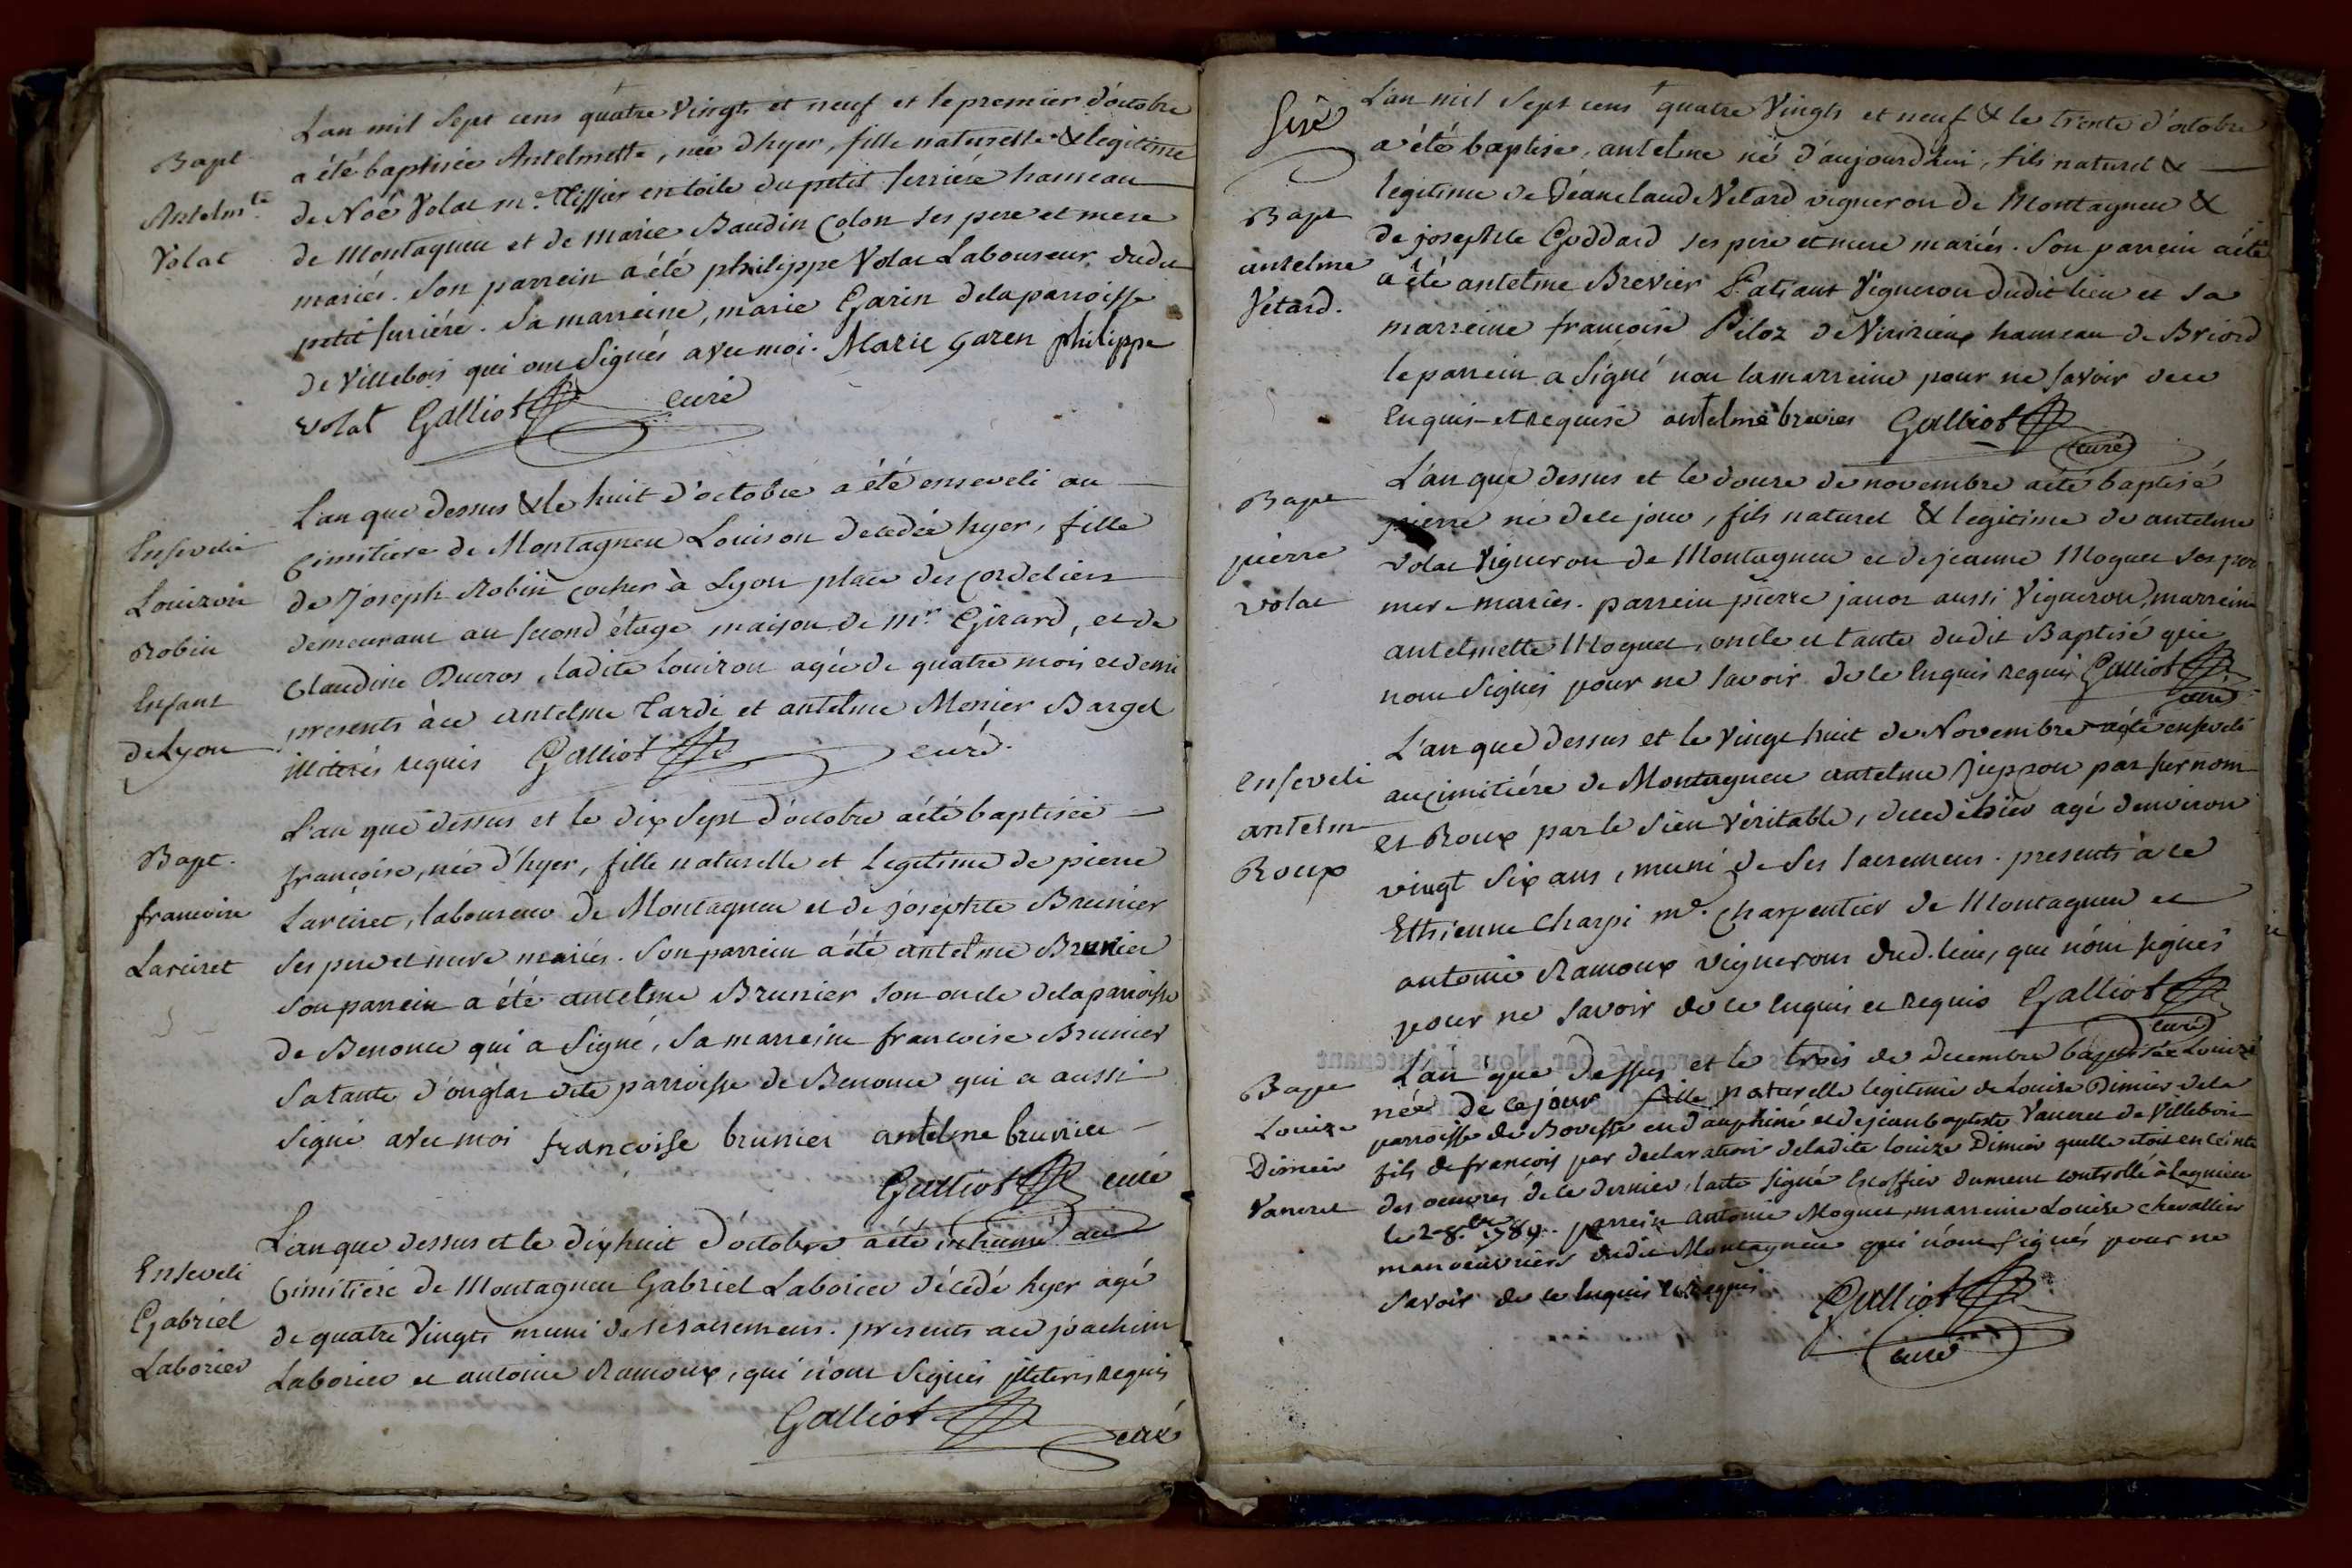 Bapt
Antelm.te
Volat
L'an mil sept cens quatre Vingts et neuf et le premier d'octobre
a été baptisée Antelmette, née d'hyer, fille naturelle & legitime
de Noë Volat m.e Tissier en toile du petit serriéré hameau
de Montagneu et de marie Baudin Colon ses pere et mere
mariés. Son parrein a été philippe Volat Laboureur dudit
petit suriére. Sa marreine, marie Garin de la parroisse
de Villebois qui ont Signés avec moi. Marie garen philippe
volat Galliot curé
Ensevelie
Louizon
Robin
Enfant
de Lyon
L'an que dessus & le huit d'octobre a été enseveli au
Cimitiere de Montagneu Louison decedée hyer, fille
de Joseph Robin cocher à Lyon place des Cordeliers
demeurant au second étage maison de mr. Girard, et de
Claudine Ducros, ladite louizon agée de quatre mois et demi
presents à ce antelme Tardi et antelme Menier Barget
illiterés requis Galliot curé.
Bapt.
francoise
Larciret
L'an que dessus et le dix sept d'octobre a été baptisée
françoise, née d'hyer, fille naturelle et legitime de pierre
Larciret, laboureur de Montagneu et de joséphte Brunier
ses pere et mere mariés. Son parrein a été antelme Brunier
Son parrein a été antelme Brunier son oncle de la parroisse
de Benonce qui a signé, sa marreine francoise Brunier
sa tante d'onglas dite parroisse de Benonce qui a aussi
signé avec moi francoise brunier antelme brunier
Galliot curé
Enseveli
Gabriel
Laborier
L'an que dessus et le dix huit d'octobre a été inhumé au
Cimitiére de Montagneu Gabriel Laborier décédé hyer agé
de quatre Vingts muni de ses sacremens. presents à ce joachim
Laborier et antoine Ramoux, qui n'ont Signés illeteris requis
Galliot curé
Bapt
antelme
Vetard.
L'an mil sept cens quatre Vingts et neuf & le trente d'octobre
a été baptisé, antelme né d'aujourdhui, fils naturel &
legitime de Jéanclaude Vetard vigneron de Montagneu &
de josephte Goddard ses pere et mere mariés. Son parrein a été
a été antelme Brevier Patiant Vigneron dudit lieu et sa
marreine francoise Piloz de Vererieux hameau de Briord
le parrein a signé non la marreine pour ne savoir de ce
Enquis et requise antelme brevies Galliot
curé
Bapt
pierre
volat
L'an que dessus et le douze de novembre a été baptisé
pierre né de ce jour, fils naturel & legitime de antelme
volat Vigneron de Montagneu et de jeanne Moguet ses per
mere mariés. parrein pierre janot aussi Vigneron, marreine
antelmette Moguet, oncle et tante dudit Baptisé qui
nont Signés pour ne savoir de ce Enquis requis Galliot
curé
enseveli
antelm
Roux
L'an que dessus et le Vingt huit de Novembre a été enseveli
au Cimitiére de Montagneu antelme Juppon par surnom
et Roux par le sien Véritable, decedé hier agé denviron
vingt six ans, muni de ses sacremens. presents à ce
Ethienne Charpi m.e charpentier de Montagneu et
antoine Ramoux vignerons dud. lieu, qui n'ont signés
pour ne savoir de ce Enquis et requis Galliot
curé
Bapt
Louize
Dimier
Vaneret
L'an que dessus et le trois de decembre baptisée Louize
née de ce jour fille naturelle legitime de Louize Dimier de la
parroisse de Bovesse en dauphiné et de jean baptiste Vaneret de Villebois
fils de françois par declaration de ladite louize Dimier quelle étoit enceinte
des oeuvres de ce dernier, l'acte signé Escoffier dument controllé à lagnieu
le 2 8.bre 1789. parrein antoine Moguet, marreine Louise chevallier
manoeuvriers dudit Montagneu qui n'ont signés pour ne
savoir de ce Enquis et requis Galliot
curé